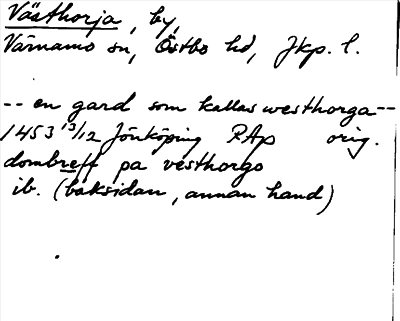 Västhorja, by,
Värnamo sn, Östbo hd, Jkp. l.
-- en gard som kallas westhorga --
1453 13/12 Jönköping RAp orig.
dombreff pa vesthorgo
ib. (baksidan, annan hand)